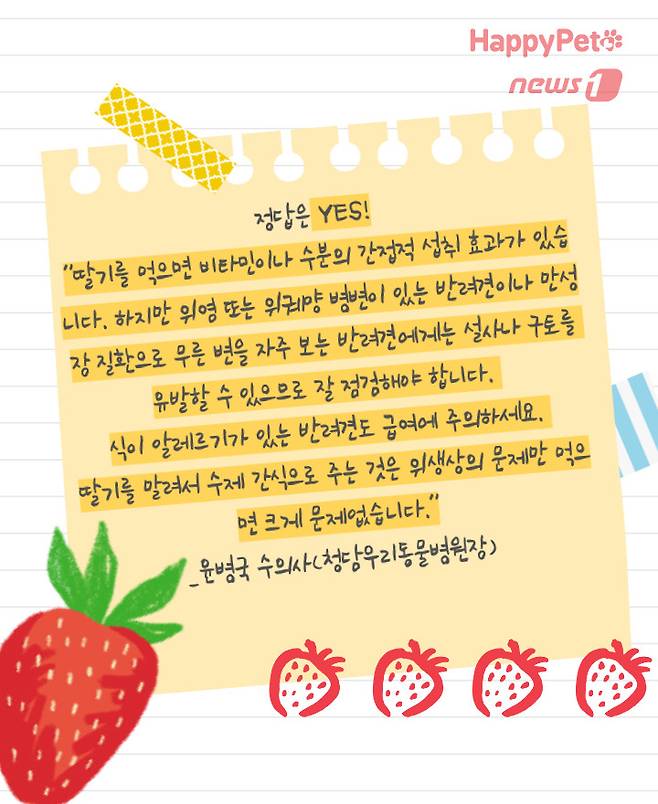 HappyPet
news1
정답은 YES!
"딸기를 먹으면 비타민이나 수분의 간접적 섭취 효과가 있습
니다. 하지만 위염 또는 위궤양 병변이 있는 반려견이나 만성
장 질환으로 무른 변을 자주 보는 반려견에게는 설사나 구토를
유발할 수 있으므로 잘 점검해야 합니다.
식이 알레르기가 있는 반려견도 급여에 주의하세요.
딸기를 말려서 수제 간식으로 주는 것은 위생상의 문제만 먹으
면 크게 문제없습니다."
_윤병국 수의사(청담우리동물병원장)